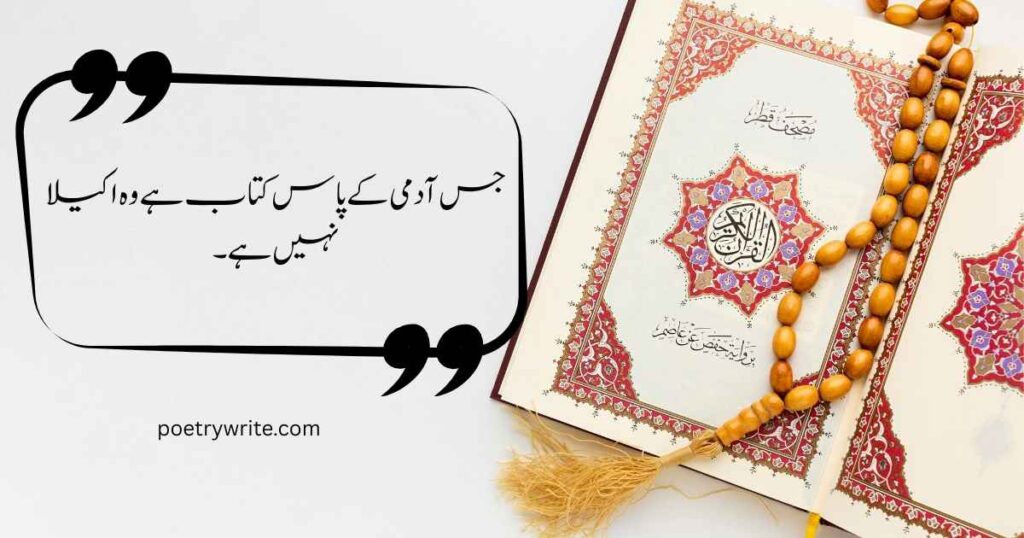 جس آدمی کے پاس کتاب ہے وہ اکیلا
نہیں ہے۔
poetrywrite.com
مصحف قطر
القرآن الكريم
برواية حفص عن عاصم